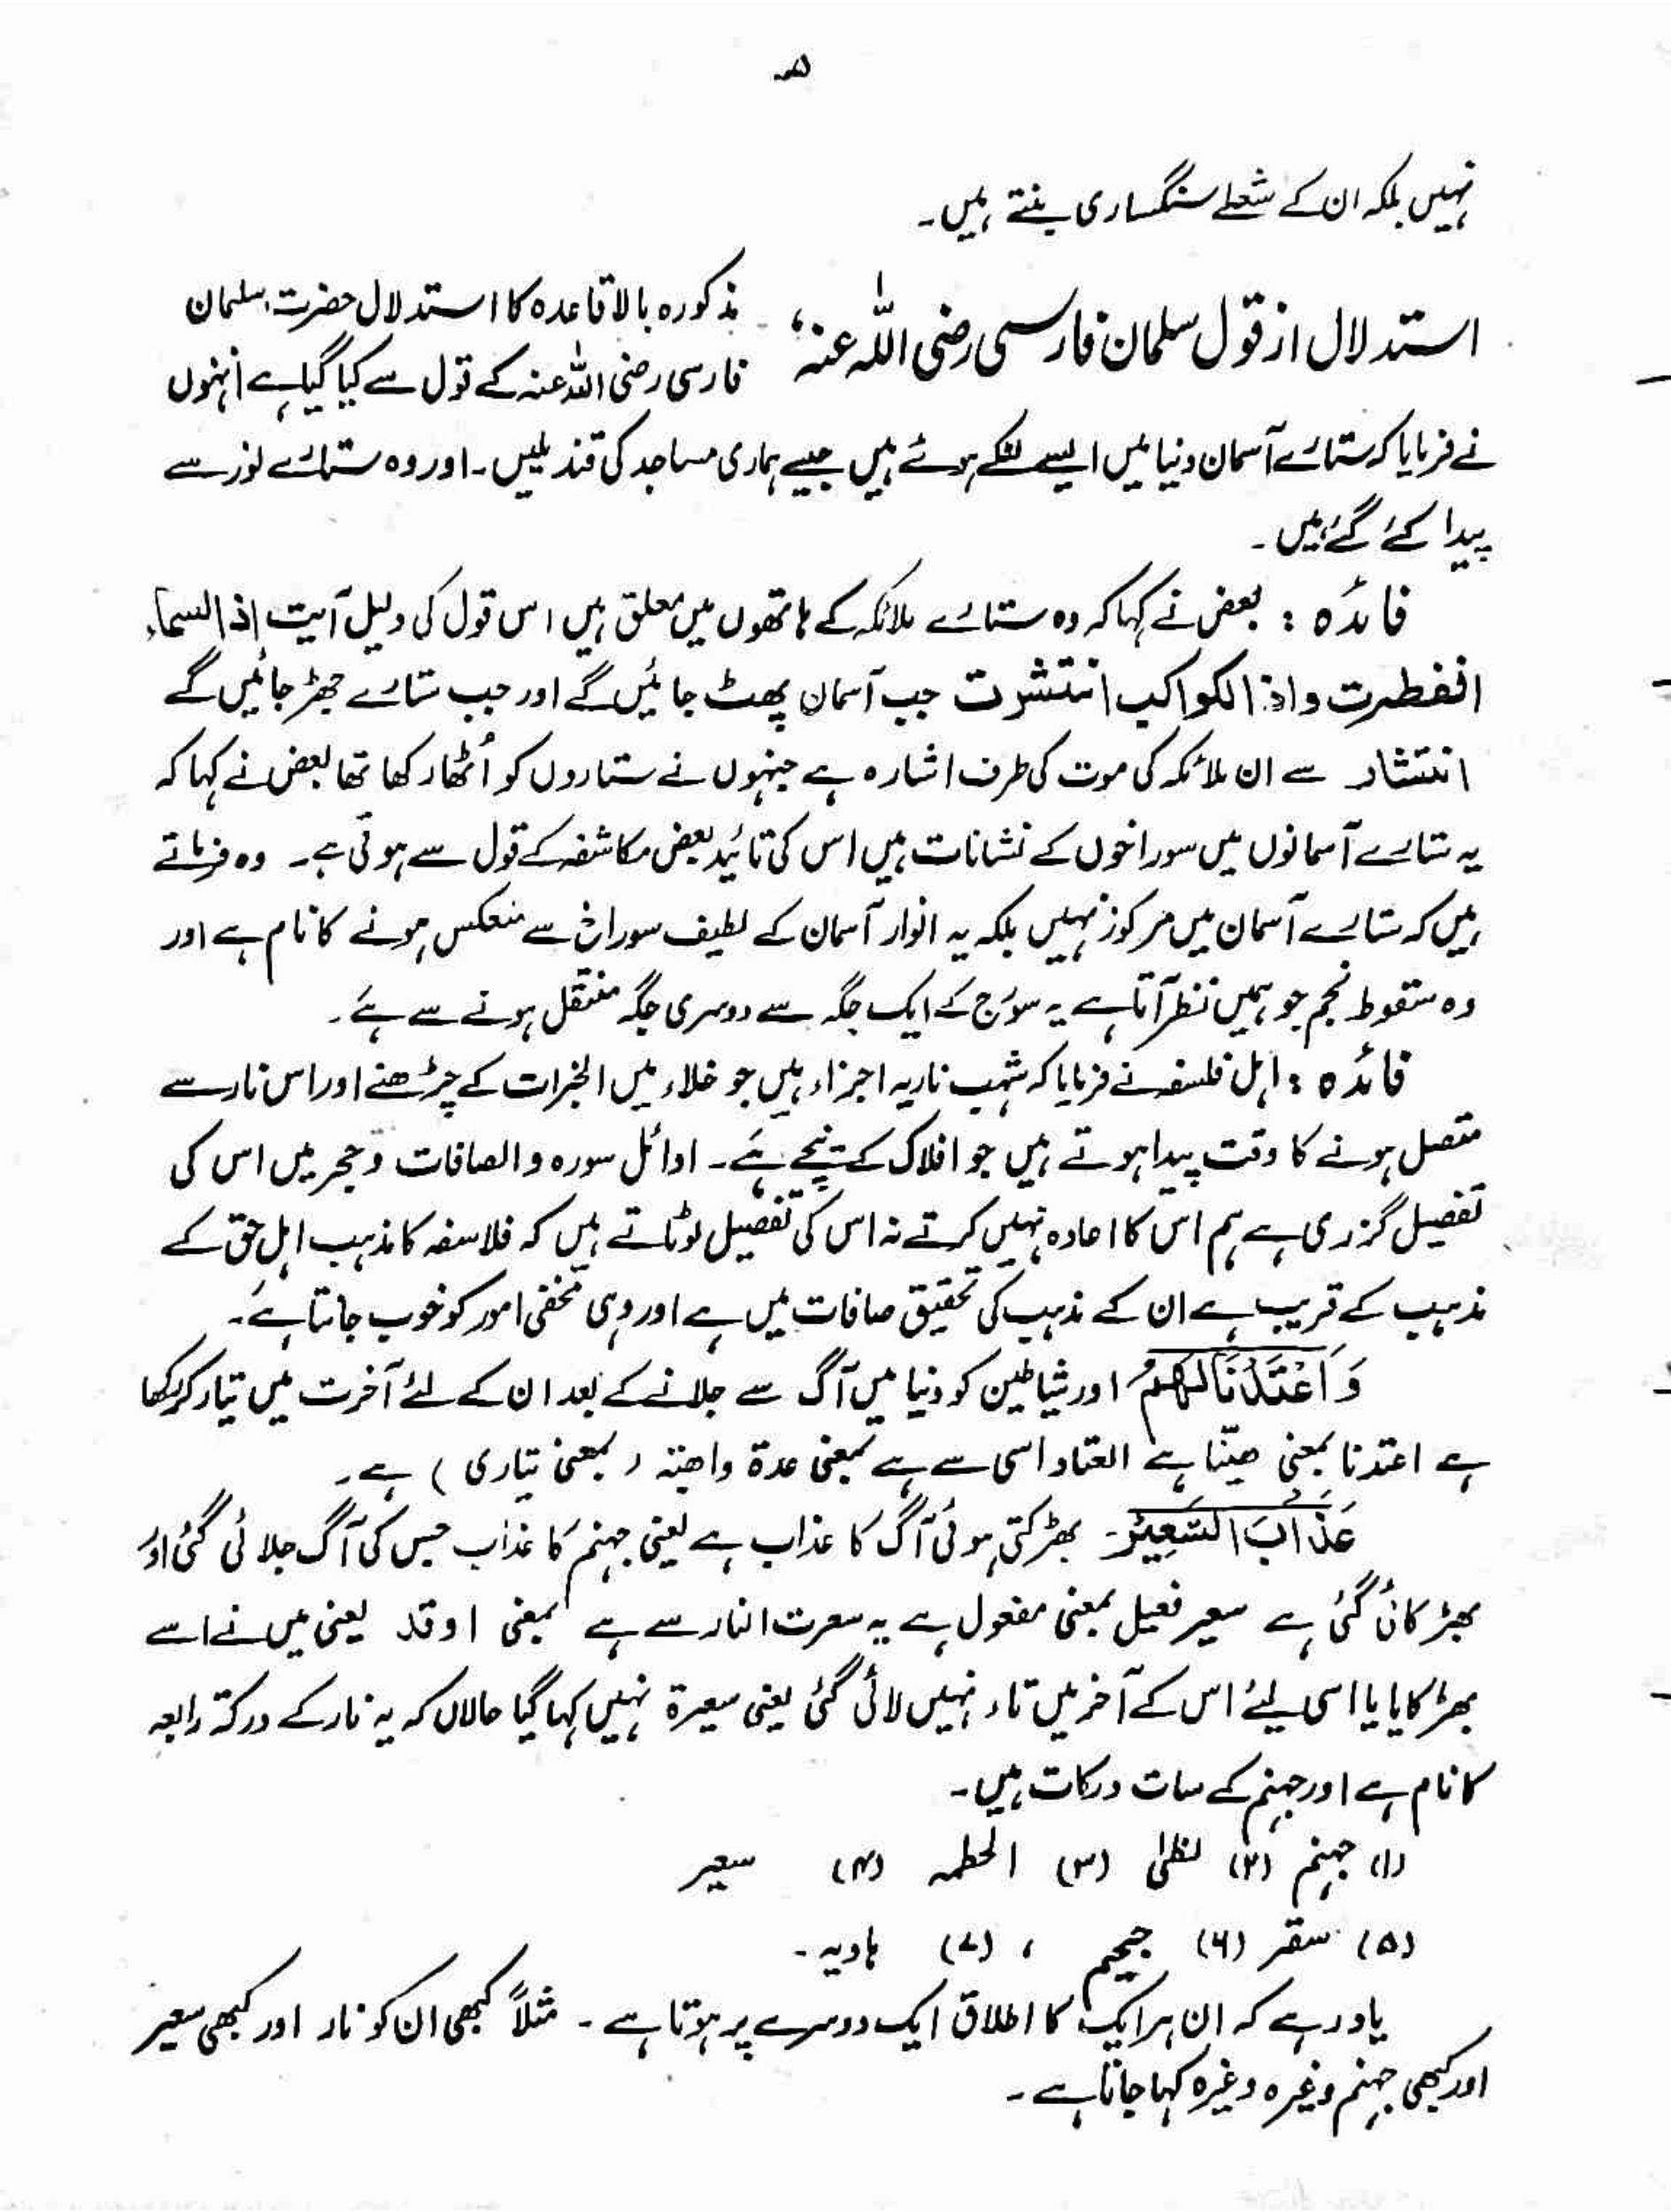 ۵
نہیں بلکہ ان کے شعلے سنگساری بنتے ہیں۔
استدلال از قول سلمان فارسی رضی اللہ عنہ،
مذکورہ بالا قاعدہ کا استدلال حضرت سلمان
فارسی رضی اللہ عنہ کے قول سے کیا گیا ہے انہوں
نے فرمایا کہ ستارے آسمان دنیا میں ایسے لٹکے ہوئے ہیں جیسے ہماری مساجد کی قندیلیں۔ اور وہ ستارے نور سے
پیدا کئے گئے ہیں۔
فائدہ : بعض نے کہا کہ وہ ستارے ملائکہ کے ہاتھوں میں معلق ہیں اس قول کی دلیل آیت اذا السماء
انفطرت واذا الکواکب انتشرت جب آسمان پھٹ جائیں گے اور جب ستارے جھڑ جائیں گے
انتشار سے ان ملائکہ کی موت کی طرف اشارہ ہے جنہوں نے ستاروں کو اُٹھا رکھا تھا بعض نے کہا کہ
یہ ستارے آسمانوں میں سوراخوں کے نشانات ہیں اس کی تائید بعض مکاشفہ کے قول سے ہوتی ہے۔ وہ فرماتے
ہیں کہ ستارے آسمان میں مرکوز نہیں بلکہ یہ انوار آسمان کے لطیف سوراخ سے منعکس ہونے کا نام ہے اور
وہ سقوط نجم جو ہمیں نظر آتا ہے یہ سورج کے ایک جگہ سے دوسری جگہ منتقل ہونے سے ہے۔
فائدہ : اہل فلسفہ نے فرمایا کہ شہب ناریہ اجزاء ہیں جو خلاء میں ابخرات کے چڑھنے اور اس نار سے
متصل ہونے کا وقت پیدا ہوتے ہیں جو افلاک کے نیچے ہے۔ اوائل سورہ والصافات و حجر میں اس کی
تفصیل گزری ہے ہم اس کا اعادہ نہیں کرتے نہ اس کی تفصیل لوٹاتے ہیں کہ فلاسفہ کا مذہب اہل حق کے
مذہب کے قریب ہے ان کے مذہب کی تحقیق صافات میں ہے اور وہی مخفی امور کو خوب جانتا ہے۔
وَ اَعْتَدْنَا لَهُمْ اور شیاطین کو دنیا میں آگ سے جلانے کے بعد ان کے لئے آخرت میں تیار کر رکھا
ہے اعتدنا بمعنی ھیّئنا ہے العتاد اسی سے ہے بمعنی عدۃ واھبتہ ( بمعنی تیاری ) ہے۔
عَذَابَ السَّعِیْرِ۔ بھڑکتی ہوئی آگ کا عذاب ہے یعنی جہنم کا عذاب جس کی آگ جلائی گئی اور
بھڑکائی گئی ہے سعیر فعیل بمعنی مفعول ہے یہ سعرت النار سے ہے بمعنی اوقد یعنی میں نے اسے
بھڑکایا یا اسی لیئے اس کے آخر میں تاء نہیں لائی گئی یعنی سعیرۃ نہیں کہا گیا حالاں کہ یہ نار کے درکۃ رابعہ
کا نام ہے اور جہنم کے سات درکات ہیں۔
(۱) جہنم (۲) لظیٰ (۳) الحطمہ (۴) سعیر
(۵) سقر (۶) جحیم ، (۷) ہاویہ۔
یاد رہے کہ ان ہر ایک کا اطلاق ایک دوسرے پر ہوتا ہے۔ مثلاً کبھی ان کو نار اور کبھی سعیر
اور کبھی جہنم وغیرہ وغیرہ کہا جاتا ہے۔